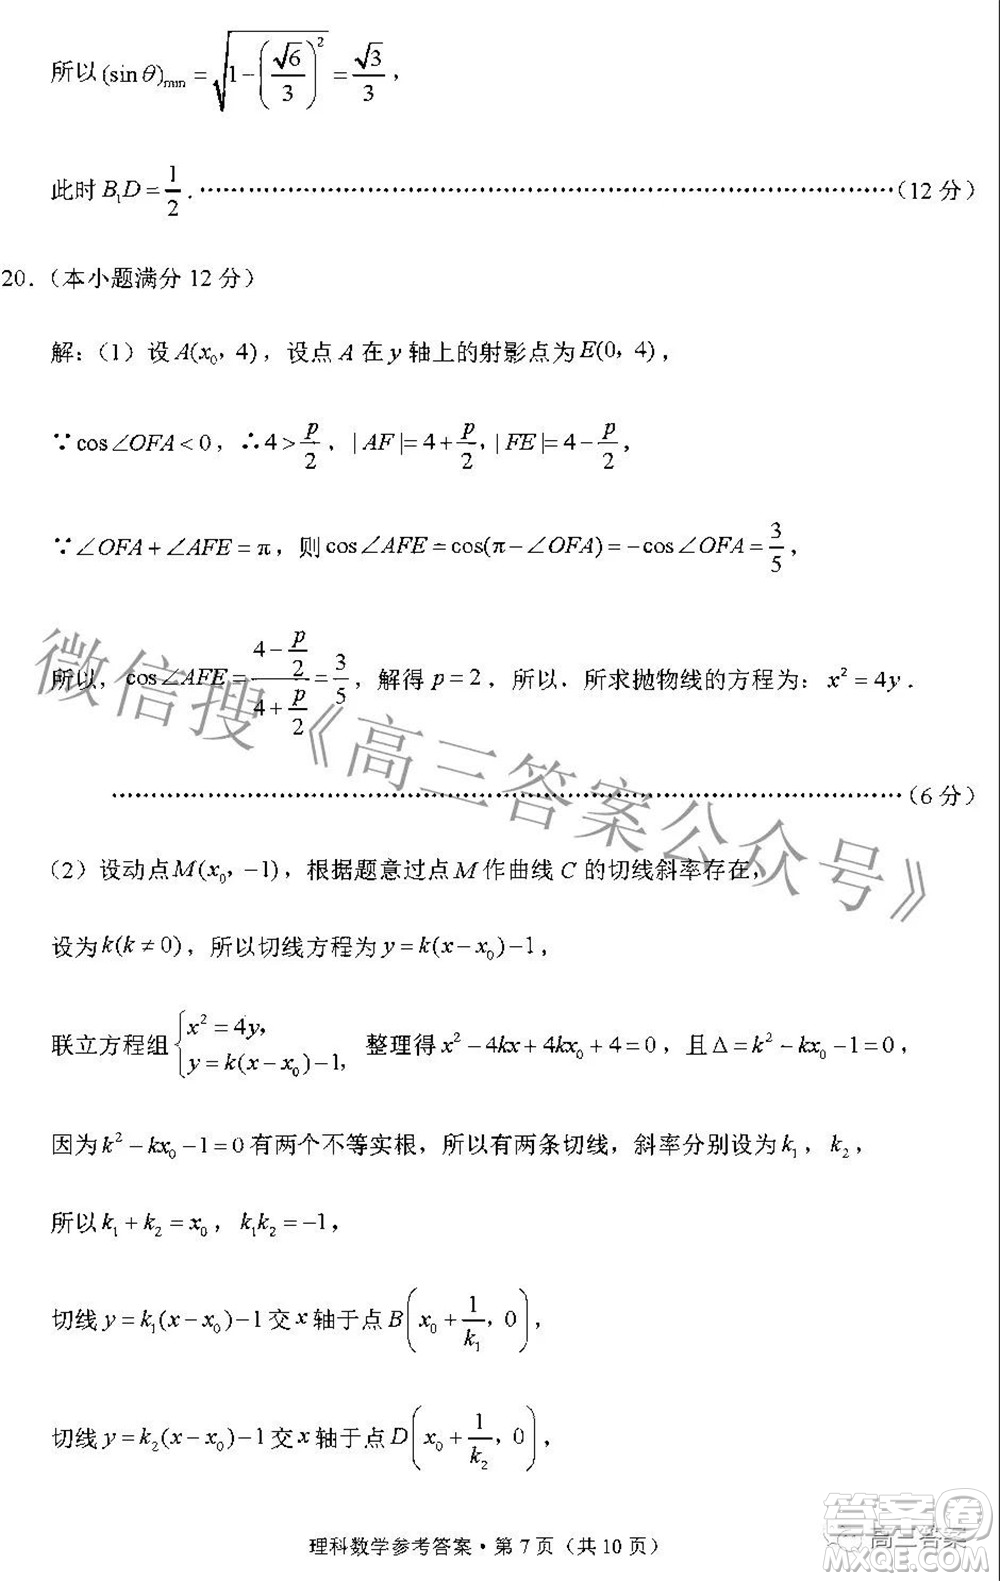 所以(sinθ)min=√(1-(√6/3)²)=√3/3，
此时B₁D=1/2.⋯⋯⋯⋯⋯⋯⋯⋯⋯⋯⋯⋯⋯⋯⋯⋯（12分）
20.（本小题满分12分）
解：（1）设A(x₀，4)，设点A在y轴上的射影点为E(0，4)，
∵cos∠OFA<0，∴4>p/2，|AF|=4+p/2，|FE|=4-p/2，
∵∠OFA+∠AFE=π，则cos∠AFE=cos(π-∠OFA)=-cos∠OFA=3/5，
所以，cos∠AFE=(4-p/2)/(4+p/2)=3/5，解得p=2，所以，所求抛物线的方程为：x²=4y.
⋯⋯⋯⋯⋯⋯⋯⋯⋯⋯⋯⋯⋯⋯⋯⋯（6分）
（2）设动点M(x₀，-1)，根据题意过点M作曲线C的切线斜率存在，
设为k(k≠0)，所以切线方程为y=k(x-x₀)-1，
联立方程组{x²=4y，y=k(x-x₀)-1，整理得x²-4kx+4kx₀+4=0，且Δ=k²-kx₀-1=0，
因为k²-kx₀-1=0有两个不等实根，所以有两条切线，斜率分别设为k₁，k₂，
所以k₁+k₂=x₀，k₁k₂=-1，
切线y=k₁(x-x₀)-1交x轴于点B(x₀+1/k₁，0)，
切线y=k₂(x-x₀)-1交x轴于点D(x₀+1/k₂，0)，
理科数学参考答案·第7页（共10页）
微信搜《高三答案公众号》
高三答案
答案圈
MXQE.COM